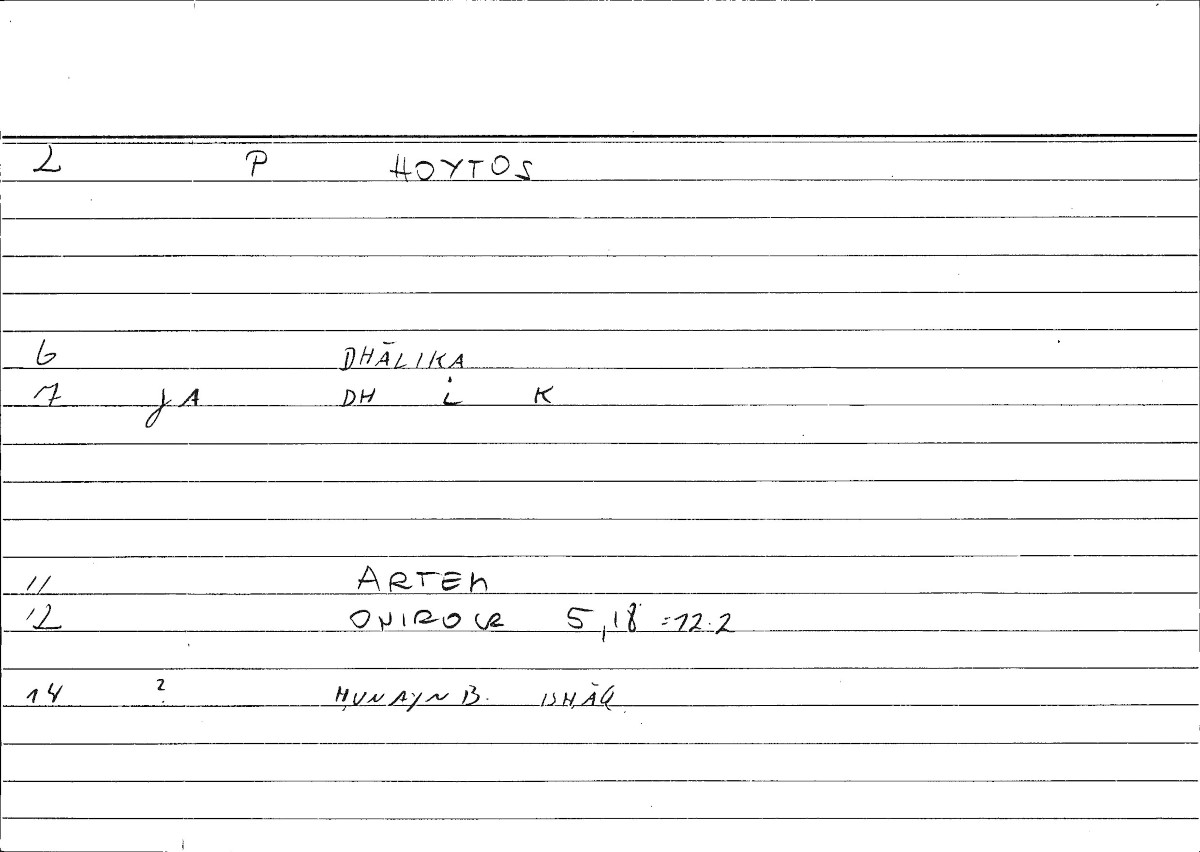 2 P HOYTOS
6 DHĀLIKA
7 JA DH L̇ K
11 ARTEM
12 ONIROCR 5,18 =12.2
14 ? ḤUNAYN B. ISḤĀQ